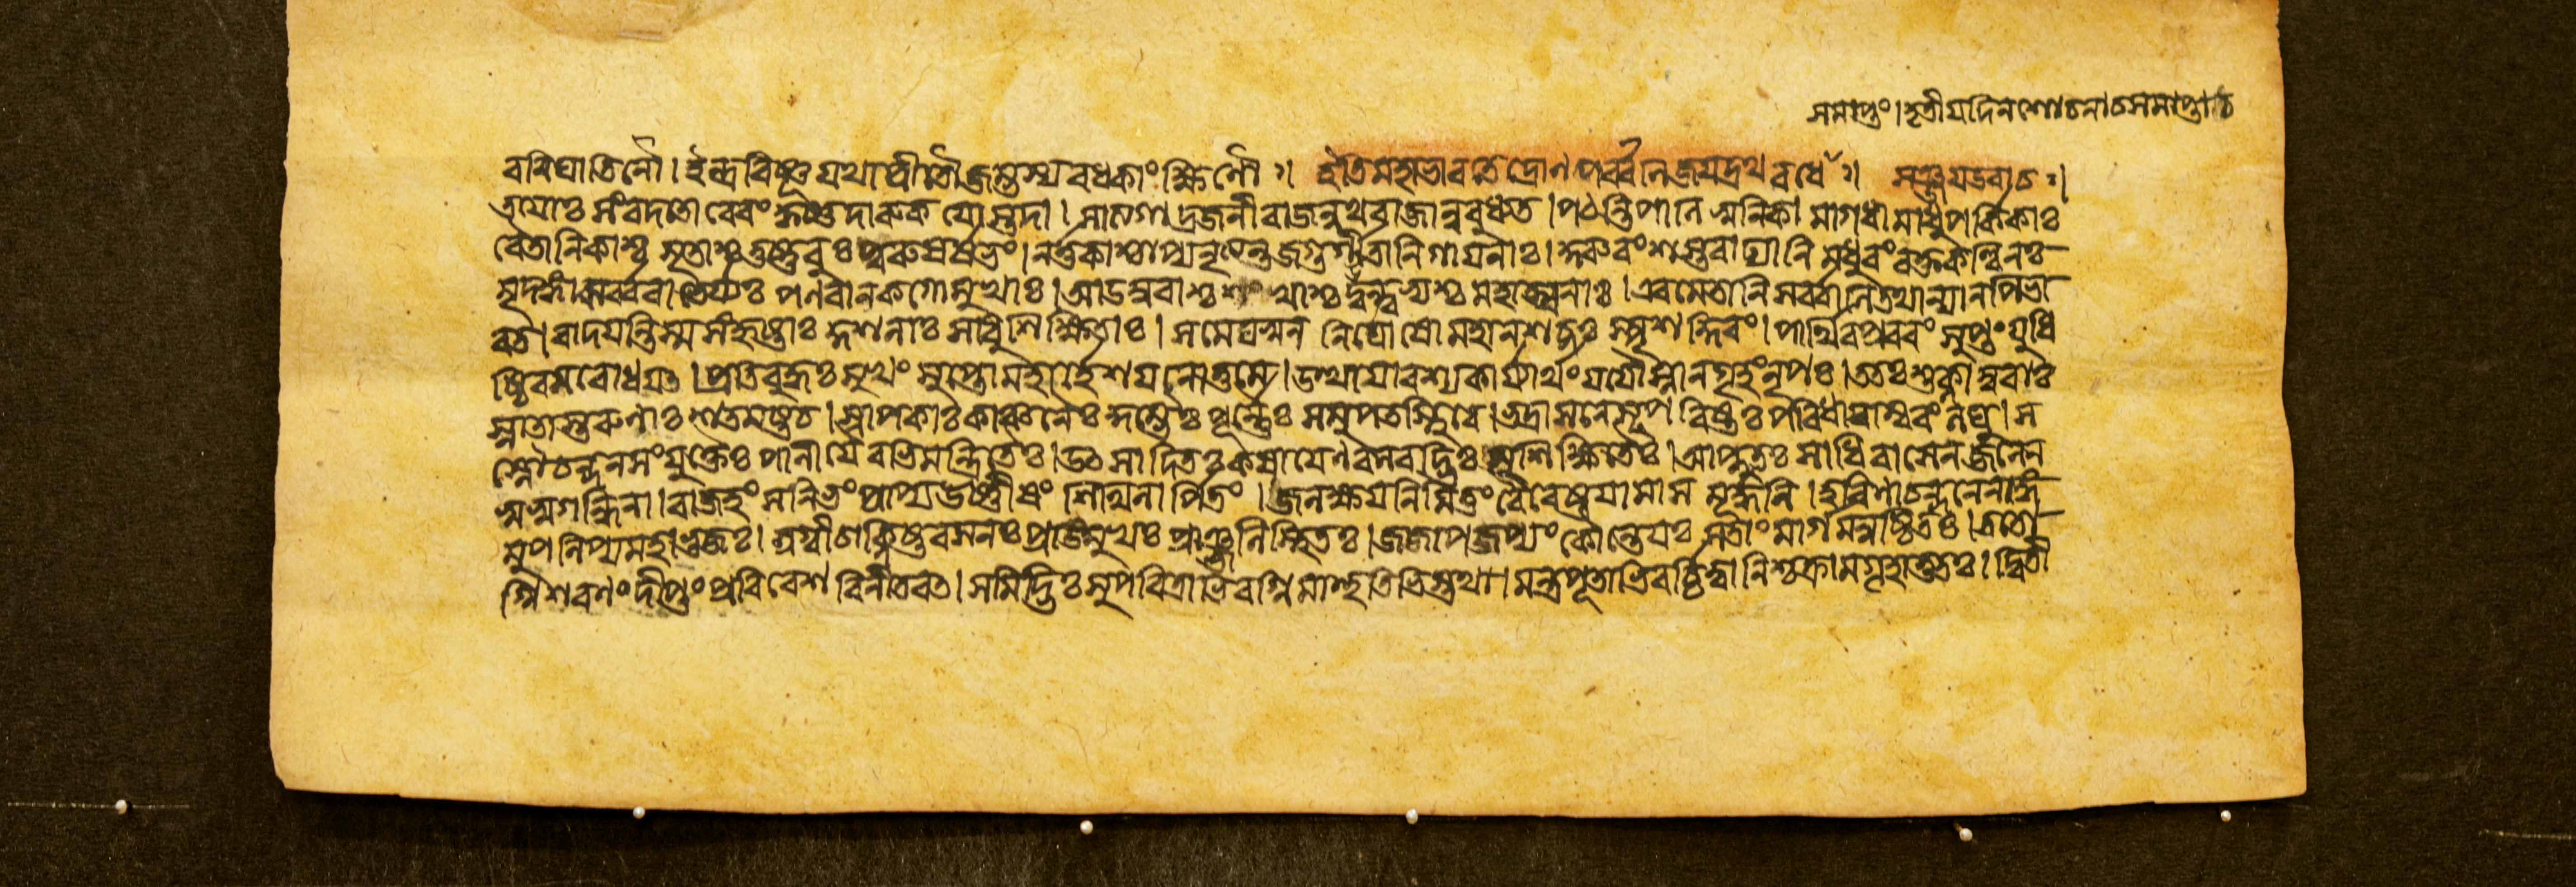 সমাপ্তং। তৃতীযদিনশোচনা চ সমাপ্তা ঃ
বরিঘাতিনৌ। ইন্দ্রবিষ্ণূ যথা প্রীতৌ জম্ভস্য বধকাংক্ষিণৌ ঃ। ইতি মহাভারতে দ্রোণপর্ব্বনি জযদ্রথবধে ঃ। সঞ্জযউবাচ ঃ।
তযোঃ সংবদতোরেবং কৃষ্ণদারুকযোস্তদা। সাত্যগাদ্রজনী রাজন্নথ রাজান্ববুধ্যত। পঠন্তি পানিস্বনিকা মাগধা মাধুপর্কিকাঃ
বৈতালিকাশ্চ সূতাশ্চ তুষ্টুবুঃ পুরুষর্ষভং। নর্ত্তকাশ্চাপ্যনৃত্যন্ত জগুর্গীতানি গাযনাঃ। কুরুবংশস্তবাদ্যানি মধুরং রক্তকন্ঠিনঃ
মৃদঙ্গা ঝর্ঝরা ভের্য্যঃ পণবানকগোমুখাঃ। আডম্বরাশ্চ শংখাশ্চ দুন্দুভ্যশ্চ মহাস্বনাঃ। এবমেতানি সর্ব্বানি তথান্যান্যপি ভা
রত। বাদযন্তি স্ম সংহৃষ্টাঃ কুশলাঃ সাধুশিক্ষিতাঃ। স মেঘস্বননির্ঘোষো মহান্ শব্দঃ স্পৃশন্দিবং। পার্থিবপ্রবরং সুপ্তং যুধি
ষ্ঠিরমবোধযৎ। প্রতিবুদ্ধঃ সুখং সুপ্তো মহার্হে শযনোত্তমে। উত্থাযাবশ্যকার্য্যার্থং যযৌ স্নানগৃহং নৃপঃ। ততঃ শুক্লাম্বরাঃ
স্নাতাস্তরুণাঃ শতমষ্ট চ। স্নাপকাঃ কাঞ্চনৈঃ কুম্ভৈঃ পূর্ন্নৈঃ সমুপতস্থিরে। ভদ্রাসনে সূপবিষ্টঃ পরিধাযাম্বরং লঘু। স
স্নৌ চন্দনসংযুক্তৈঃ পানীযৈরভিমন্ত্রিতৈঃ। উৎসাদিতঃ কষাযেণ বলবদ্ভিঃ সুশিক্ষিতৈঃ। আপ্লুতঃ সাধিবাসেন জলেন
সুসুগন্ধিনা। রাজহংসনিভং প্রাপ্য উষ্ণীষং শিথিলার্পিতং। জলক্ষযনিমিত্তং বৈ বেষ্টযামাস মূর্দ্ধনি। হরিণা চন্দনেনাঙ্গ
মুপলিপ্য মহাভুজঃ। স্রগ্বী চাক্লিষ্টবসনঃ প্রাঙ্মুখঃ প্রাঞ্জলিস্থিতঃ। জজাপ জপ্যং কৌন্তেযঃ সতাং মার্গমনুষ্ঠিতঃ। ততো
গ্নিশরণং দীপ্তং প্রবিবেশ বিনীতবৎ। সমিদ্ভিঃ সুপবিত্রাভিরগ্নিমাহুতিভিস্তথা। মন্ত্রপূতাভিরর্চ্চিত্বা নিশ্চক্রাম গৃহাত্ততঃ। দ্বিতী